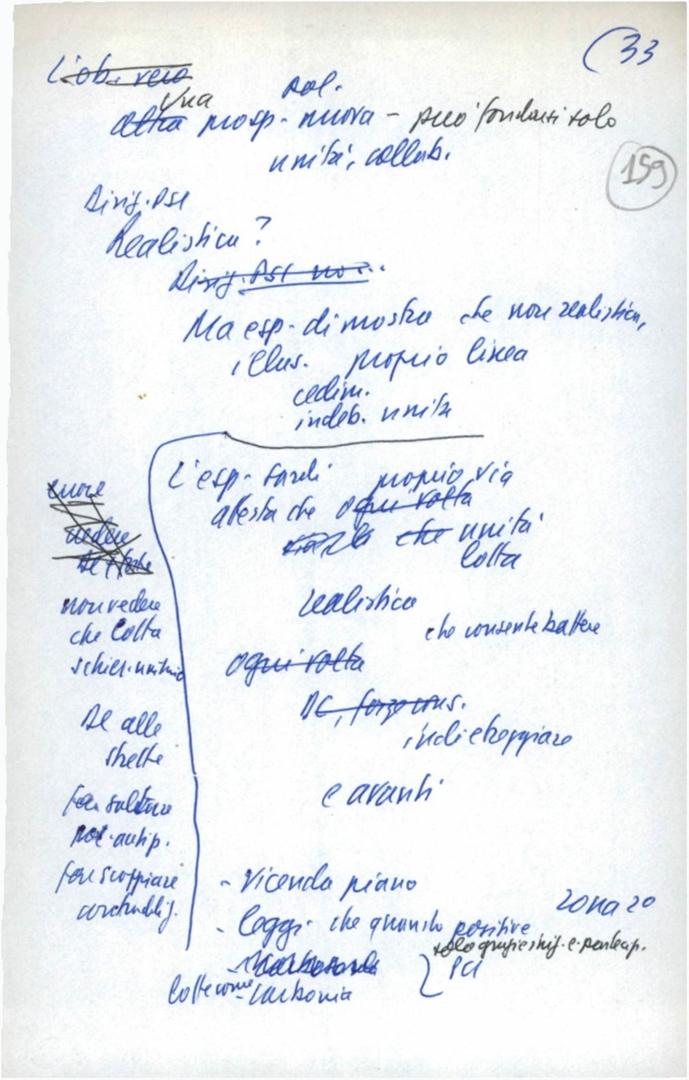 (33
L'ob. vero
Una
pol.
altra prosp. nuova - può fondarsi solo
unità, collab.
159
Dirig. PSI
Realistica?
Dirig. PSI no...
Ma esp. dimostra che non realistica,
illus. proprio linea
cedim.
indeb. unità
L'esp. sardi proprio via
attesta che ogni volta
che unità
lotta
realistica
che consente battere
ogni volta
DC, forze cons.
indietreggiare
e avanti
- vicenda piano
- leggi che quando positive
zona 20
PCI
lotte come - Carbonia
vedere
non vedere
che lotta
schier. unitario
DC alle
strette
far saltare
pol. antip.
far scoppiare
contraddiz.